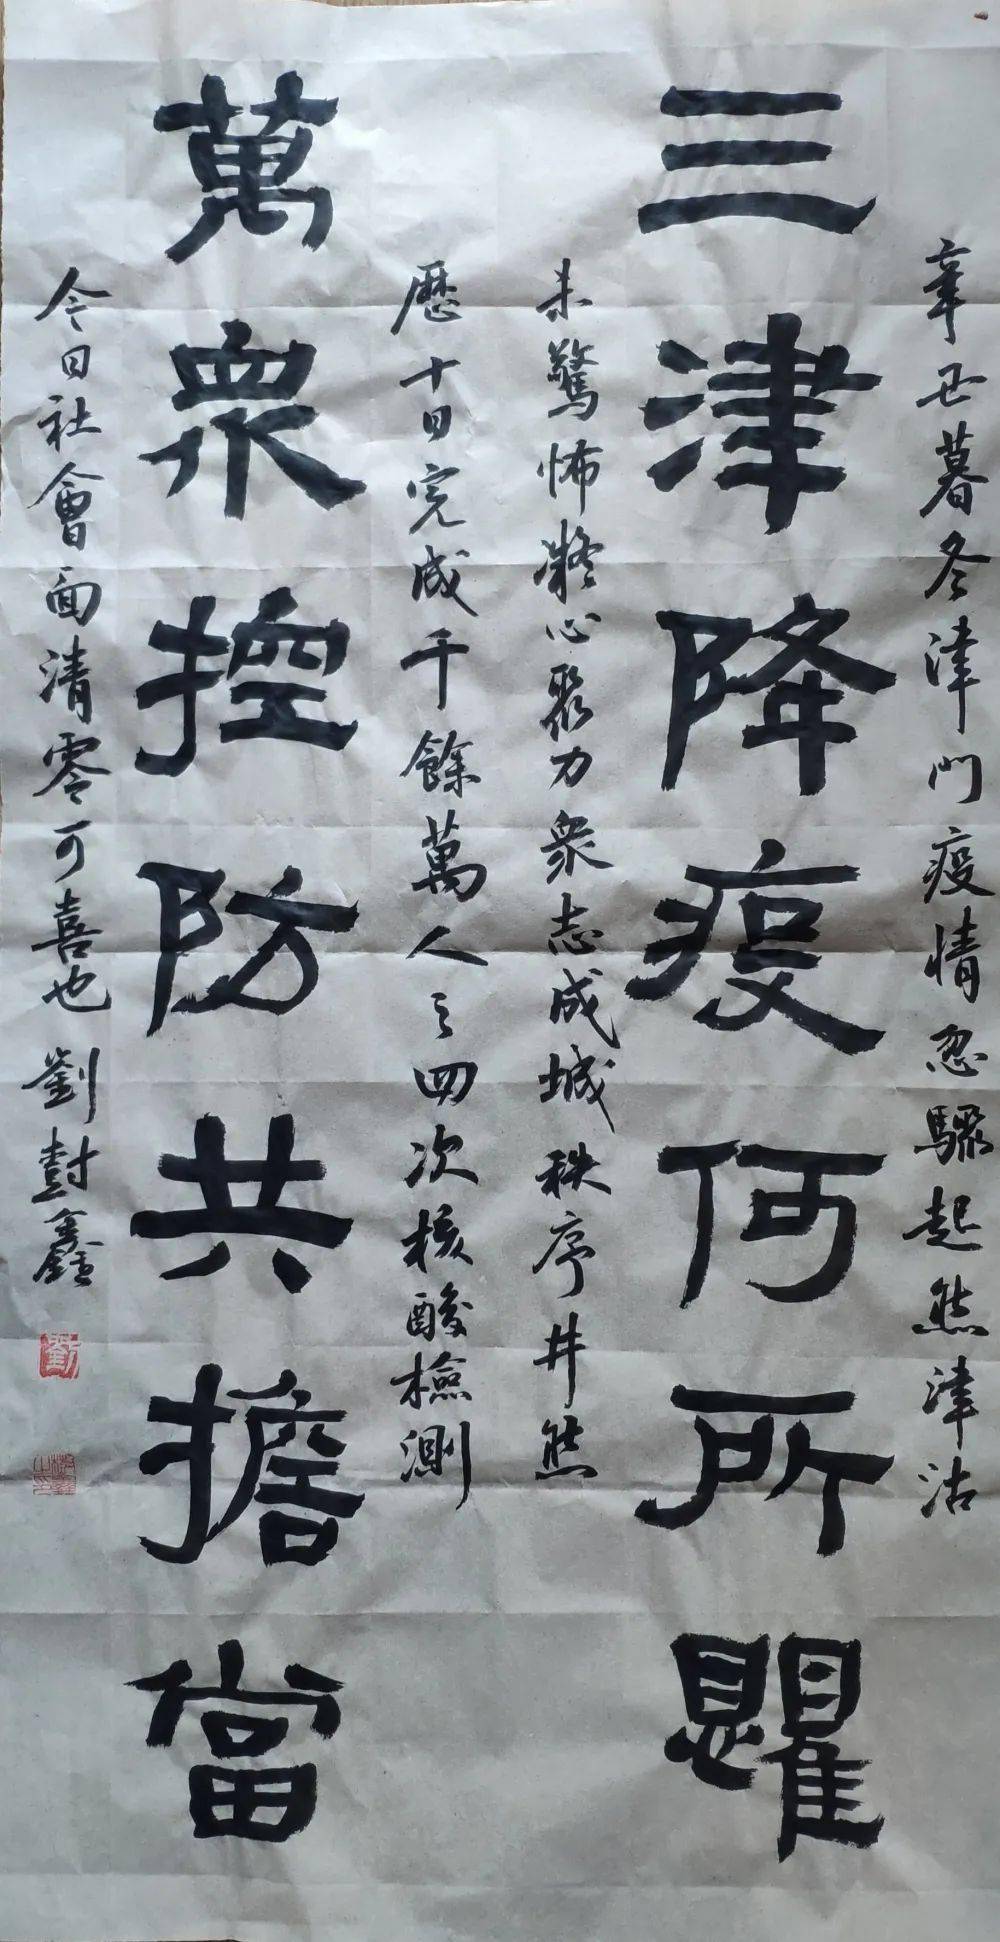 辛丑暮冬津門疫情忽驟起然津沽
三津降疫何所懼
未驚怖凝心聚力衆志成城秩序井然
歷十日完成千餘萬人之四次核酸檢測
萬眾控防共擔當
今日社會面清零可喜也 劉鑫
劉